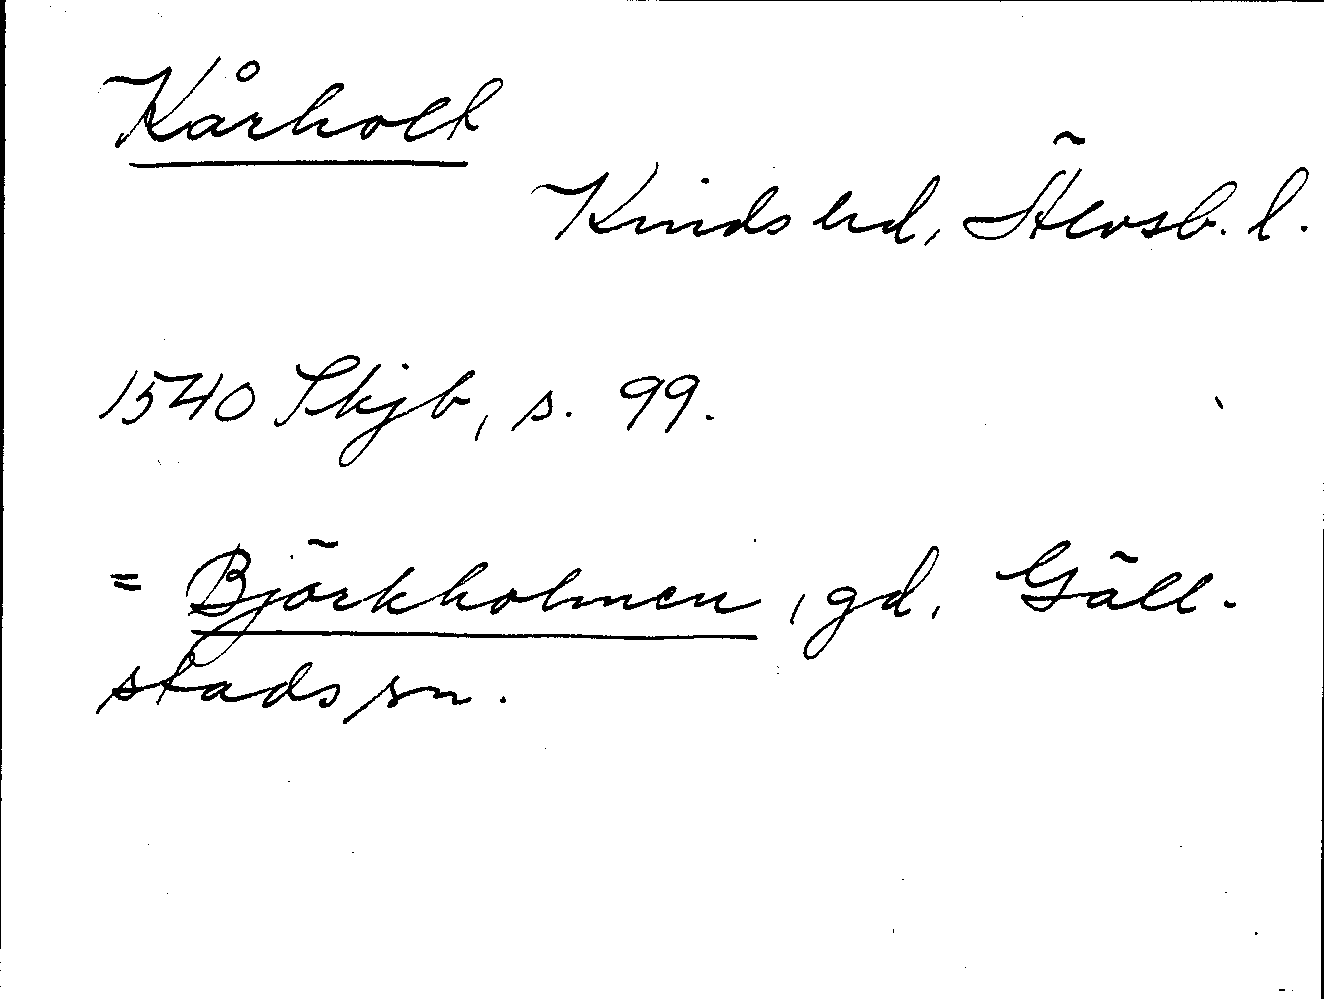 Kårholt
Kinds hd, Älvsb. l.
1540 Skjb, s. 99.
= Björkholmen, gd, Gäll-
stads sn.